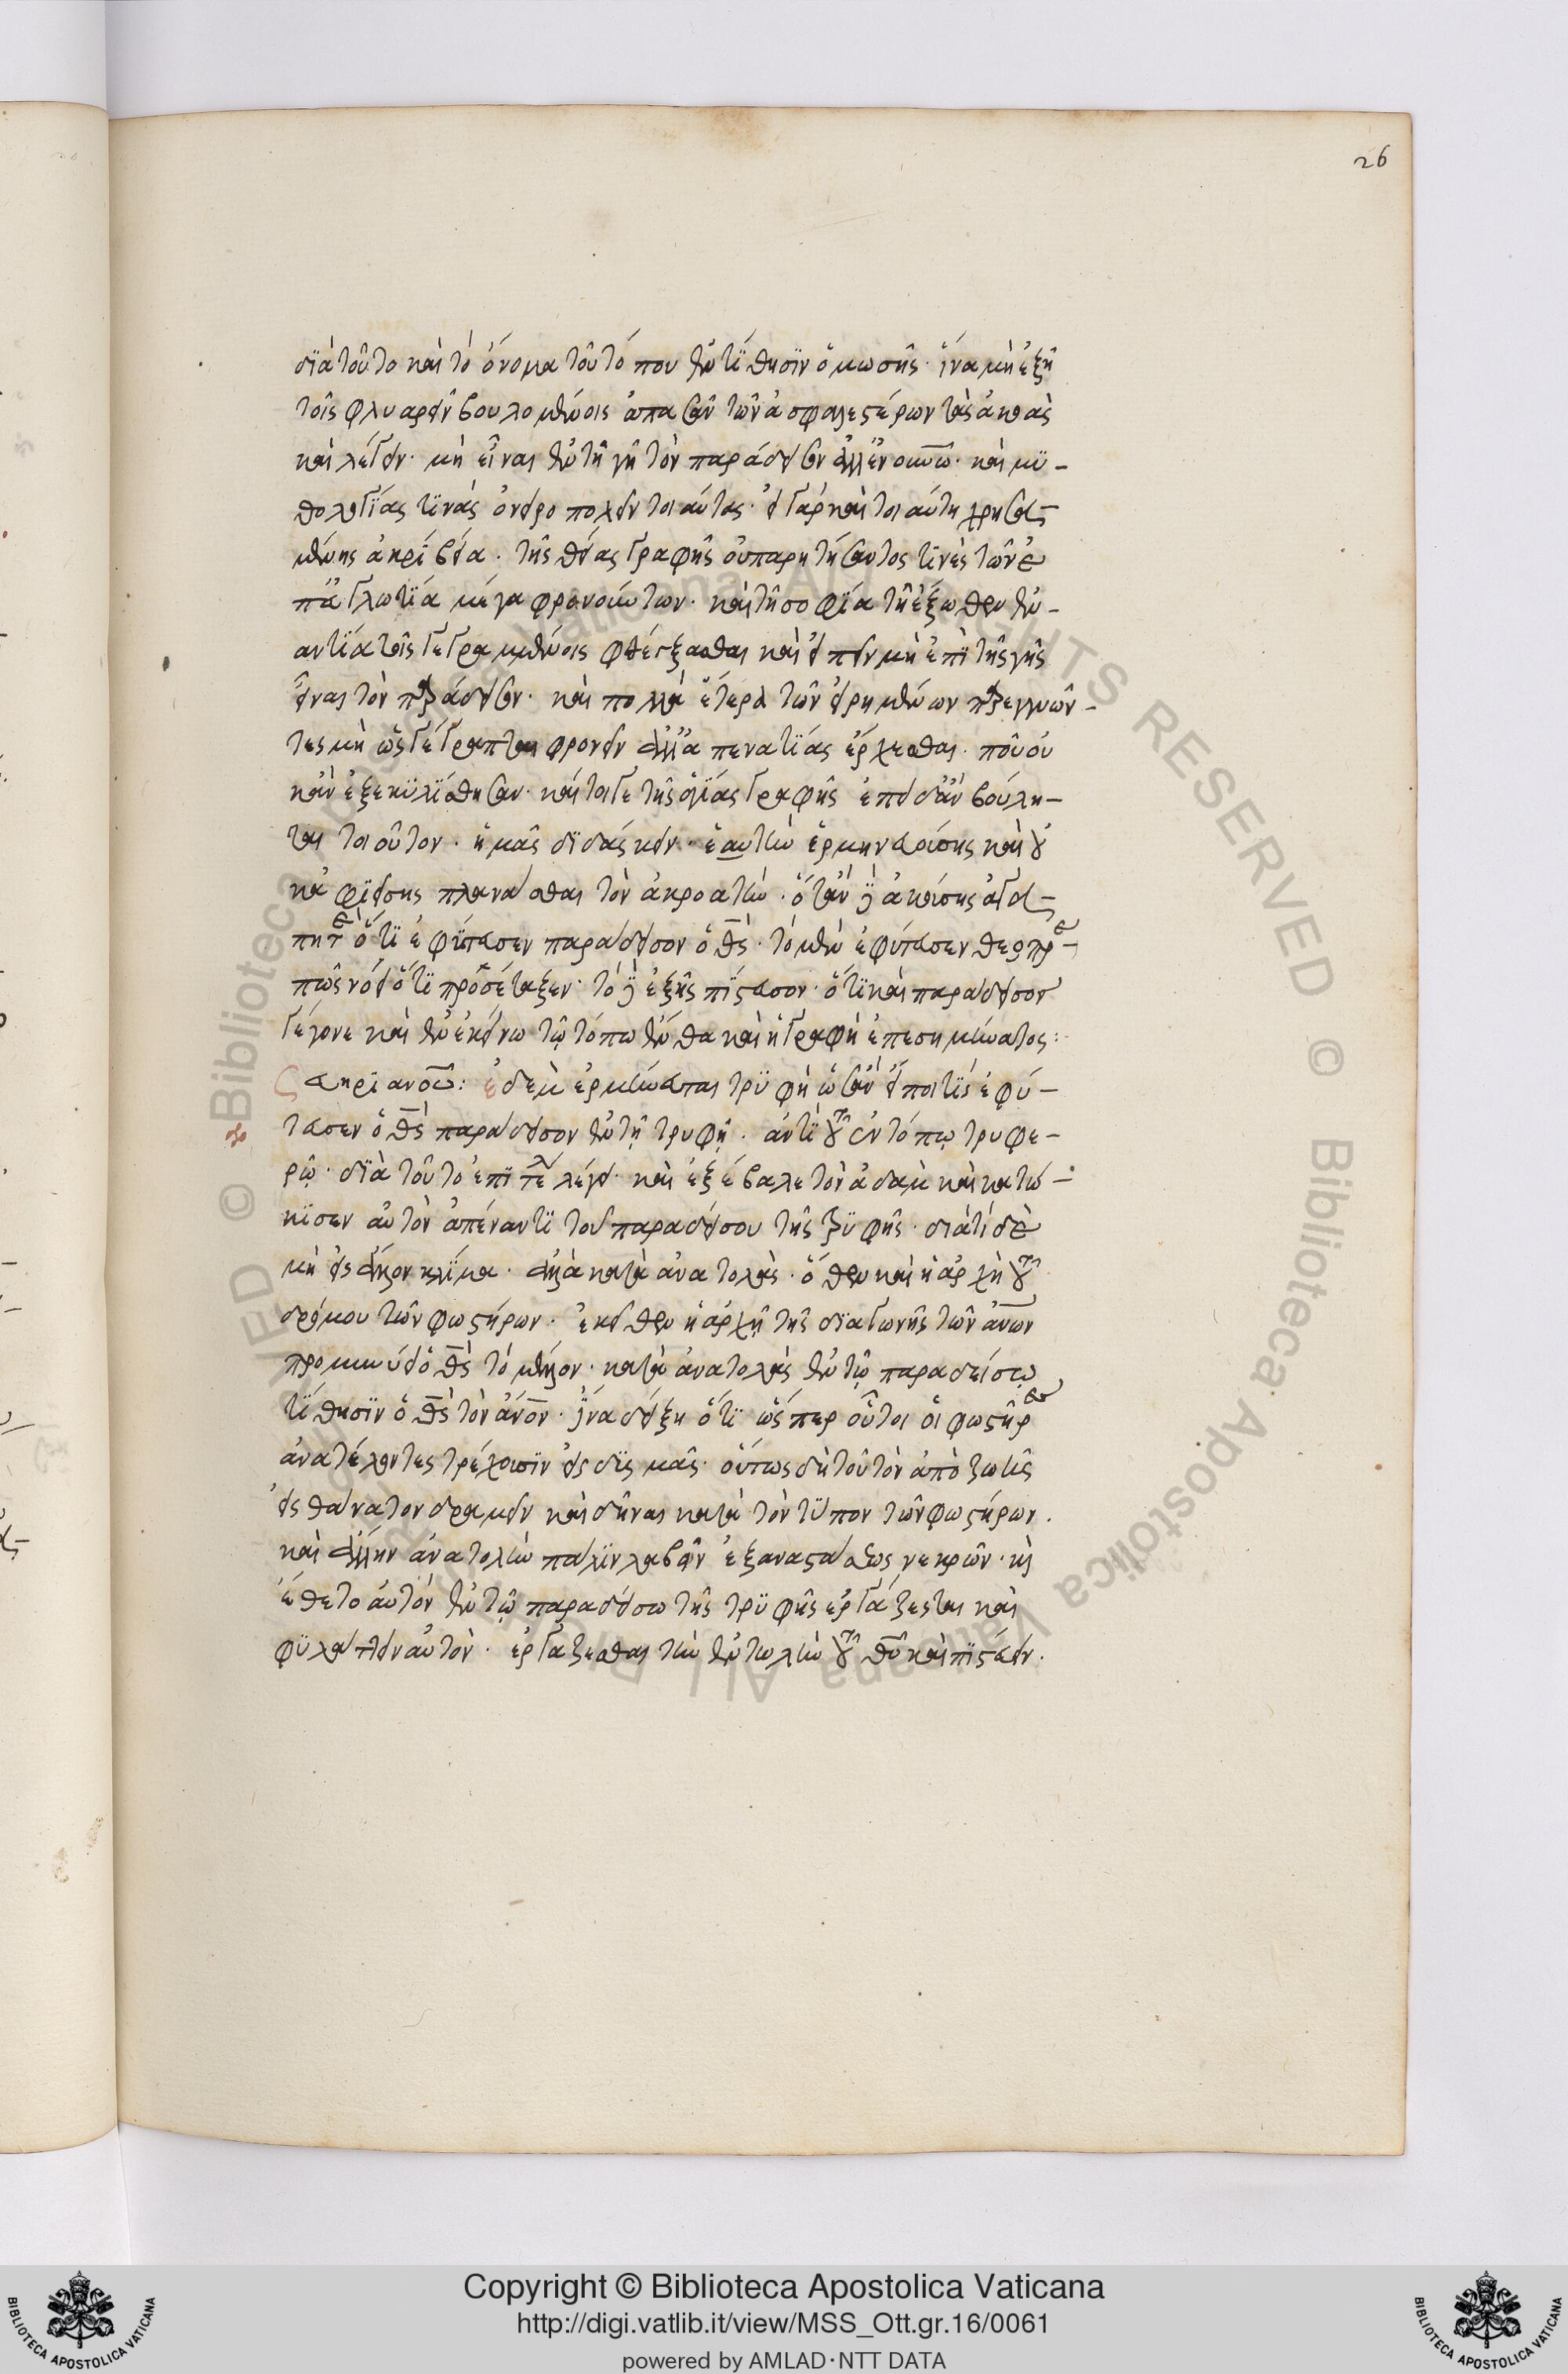 26
διὰ τοῦτο καὶ τὸ ὄνομα τοῦ τόπου ἐντίθησιν ὁ μωσῆς· ἵνα μὴ ἐξῆ
τοῖς φλυαρεῖν βουλομένοις ἀπατᾶν τῶν ἀφελεστέρων τὰς ἀκοὰς
καὶ λέγειν· μὴ εἶναι ἐν τῆ γῆ τὸν παράδεισον ἀλλ' ἐν οὐνῶ· καὶ μυ-
θολογίας τινὰς ὀνειροπολεῖν τοιαύτας· εἰ γὰρ καὶ τοιαύτη χρησα-
μένης ἀκριβεία· τῆς θείας γραφῆς οὐ παρητήσαντο τινὲς τῶν ἐ-
π' εὐγλωττία μέγα φρονούντων· καὶ τῆ σοφία τῆ ἔξωθεν ἐν-
αντία τοῖς γεγραμμένοις φθέγξασθαι καὶ εἰπεῖν μὴ ἐπὶ τῆς γῆς
εἶναι τὸν παράδεισον· καὶ πολλὰ ἕτερα τῶν εἰρημένων παρεγγυῶν-
τες μὴ ὡς γέγραπται φρονεῖν ἀλλ' ἀπεναντίας ἔρχεσθαι· ποῦ οὐ
κἂν ἐξεκυλίσθησαν· καίτοι γε τῆς ἁγίας γραφῆς ἐπειδὰν βούλη-
ται τοιοῦτον· ἡμᾶς διδάσκειν· ἑαυτὴν ἑρμηνευούσης καὶ οὐ
κ' ἀφιείσης πλανᾶσθαι τὸν ἀκροατήν· ὅταν δὲ ἀκούσης ἀγα-
πητὲ ὅτι ἐφύτευσεν παράδεισον ὁ θς· τὸ μὲν ἐφύτευσεν θεοπρε-
πῶς νόει ὅτι προσέταξεν· τὸ δὲ ἑξῆς πίστευσον· ὅτι καὶ παράδεισον
γέγονε καὶ ἐν ἐκείνω τῶ τόπω ἔνθα καὶ ἡ γραφὴ ἐπεσημήνατο:
ςευηριανοῦ: ἐδεμ ἑρμηνεύεται τρυφὴ ὡσὰν εἴποι τίς ἐφύ-
τευσεν ὁ θς παράδεισον ἐν τῆ τρυφῆ· ἀντὶ τοῦ ἐν τόπω τρυφε-
ρῶ· διὰ τοῦτο ἐπὶ τέλ λέγει· καὶ ἐξέβαλε τὸν ἀδαμ καὶ κατώ-
κισεν αὐτὸν ἀπέναντι τοῦ παραδείσου τῆς τρυφῆς· διὰ τί δὲ
μὴ εἰς ἄλλον κλίμα· ἀλλὰ κατὰ ἀνατολὰς· ὅθεν καὶ ἡ ἀρχὴ τοῦ
δρόμου τῶν φωστήρων· ἐκεῖθεν ἡ ἀρχῆ τῆς διαγωγῆς τῶν ἀνων
προμηνύει ὁ θς τὸ μέλλον· κατὰ ἀνατολὰς ἐν τῶ παραδείσω
τίθησιν ὁ θς τὸν ἀνον· ἵνα δείξη ὅτι ὥσπερ οὗτοι οἱ φωστῆρες
ἀνατέλλοντες τρέχουσιν εἰς δυσμάς· οὕτως δὴ τοῦτον ἀπὸ ζωῆς
εἰς θάνατον δραμεῖν καὶ δῦναι κατὰ τὸν τύπον τῶν φωστήρων·
καὶ ἄλλην ἀνατολὴν πάλιν λαβεῖν ἐξ ἀναστάσεως νεκρῶν· καὶ
ἔθετο αὐτὸν ἐν τῶ παραδείσω τῆς τρυφῆς ἐργάζεσται καὶ
φυλάττειν αὐτὸν· ἐργάζεσθαι τὴν ἐντολὴν τοῦ θυ καὶ πιστεύειν·
Copyright © Biblioteca Apostolica Vaticana
http://digi.vatlib.it/view/MSS_Ott.gr.16/0061
powered by AMLAD·NTT DATA